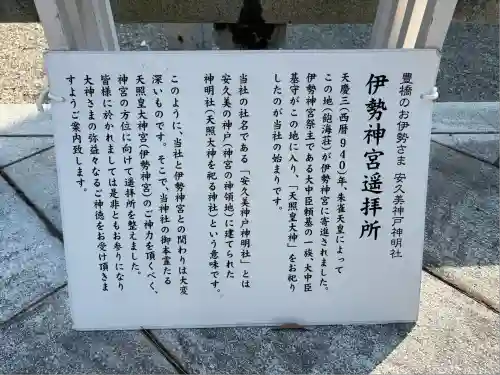 豊橋のお伊勢さま 安久美神戸神明社
伊勢神宮遥拝所
天慶三(西暦940)年、朱雀天皇によって
この地(飽海荘)が伊勢神宮に寄進されました。
伊勢神宮祭主である大中臣頼基の一族、大中臣
基守がこの地に入り、「天照皇大神」をお祀り
したのが当社の始まりです。
当社の社名である「安久美神戸神明社」とは
安久美の神戸(神宮の神領地)に建てられた
神明社(天照大神を祀る神社)という意味です。
このように、当社と伊勢神宮との関わりは大変
深いものです。そこで、当神社の御本霊たる
天照皇大神宮(伊勢神宮)のご神力を頂くべく、
神宮の方位に向けて遥拝所を整えました。
皆様に於かれましては是非ともお参りになり
大神さまの弥益々なるご神徳をお受け頂きま
すようご案内致します。